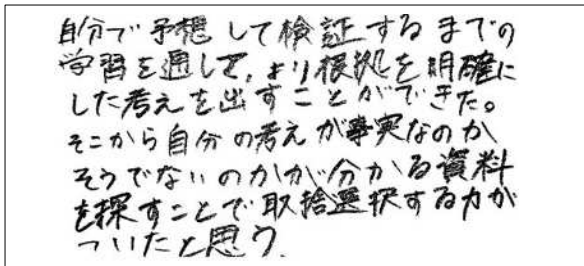 自分で予想して検証するまでの
学習を通して、より根拠を明確に
した考えを出すことができた。
そこから自分の考えが事実なのか
そうでないのかが分かる資料
を探すことで取捨選択する力が
ついたと思う.